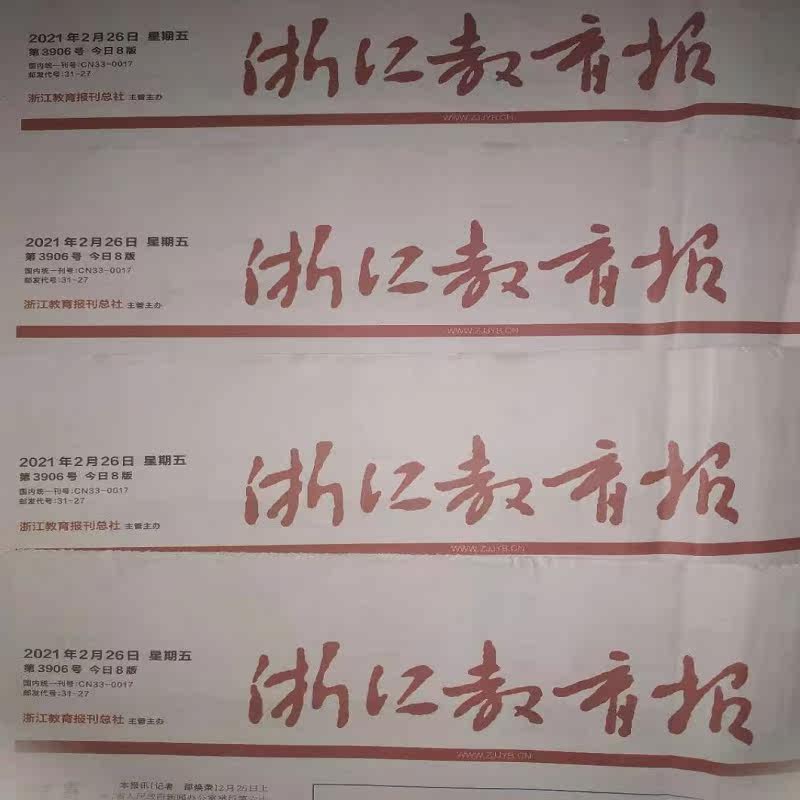 2021年2月26日 星期五
第3906号 今日8版
国内统一刊号:CN33-0017
邮发代号:31-27
浙江教育报刊总社 主管主办
浙江教育报
WWW.ZJJYB.CN
2021年2月26日 星期五
第3906号 今日8版
国内统一刊号:CN33-0017
邮发代号:31-27
浙江教育报刊总社 主管主办
浙江教育报
WWW.ZJJYB.CN
2021年2月26日 星期五
第3906号 今日8版
国内统一刊号:CN33-0017
邮发代号:31-27
浙江教育报刊总社 主管主办
浙江教育报
WWW.ZJJYB.CN
2021年2月26日 星期五
第3906号 今日8版
国内统一刊号:CN33-0017
邮发代号:31-27
浙江教育报刊总社 主管主办
浙江教育报
WWW.ZJJYB.CN
本报讯(记者 邵焕荣)2月26日上